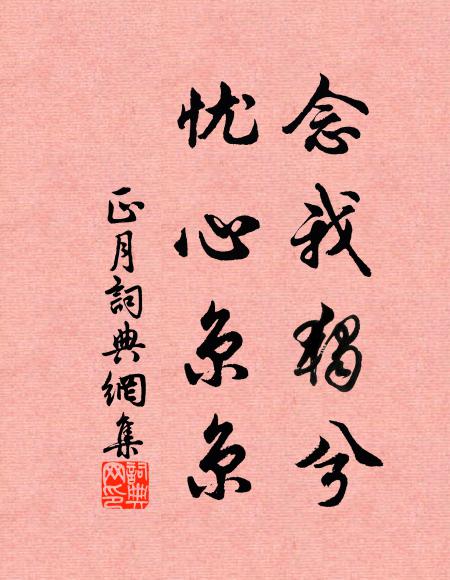 念我獨兮
忧心京京
正月詞典網集
詞典網印